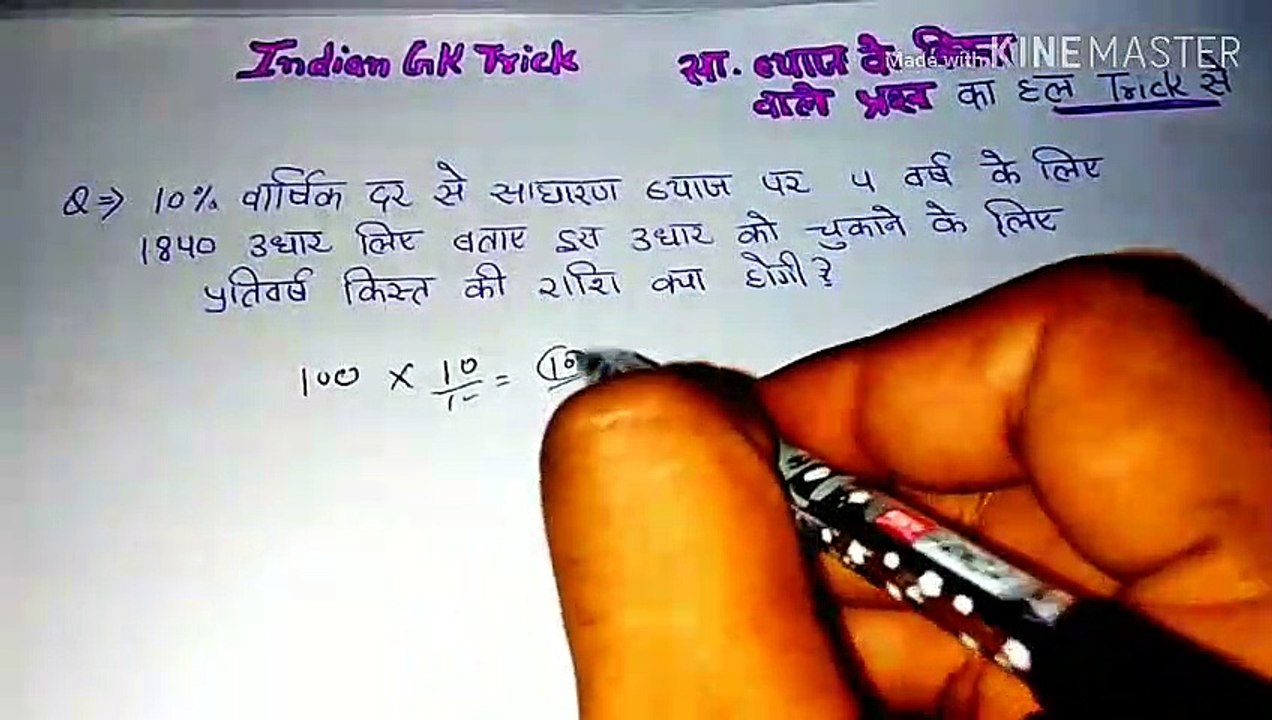 Indian GK Trick
सा. ब्याज के किस्त
Made with KINEMASTER
वाले प्रश्न का हल Trick से
Q⇒ 10% वार्षिक दर से साधारण ब्याज पर 4 वर्ष के लिए
1840 उधार लिए बताए इस उधार को चुकाने के लिए
प्रतिवर्ष किस्त की राशि क्या होगी?
100 × 10/10 = 10